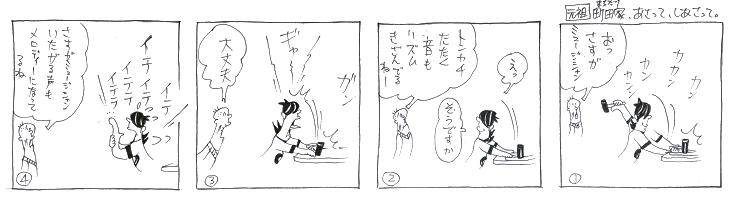 元祖 町田家、あさって、しあさって。
まちだけ
おっ
さすが
ミュージシャン
カンッ
カカン
カン
カン
①
えっ
トンカチ
たたく
音も
リズム
きざんでる
ねー
そうですか
②
ガン
ギャー
大丈夫
③
イテ
イテテ
イテテ
イテ
さすがミュージシャン
いたがる声も
メロディーになって
るね
④